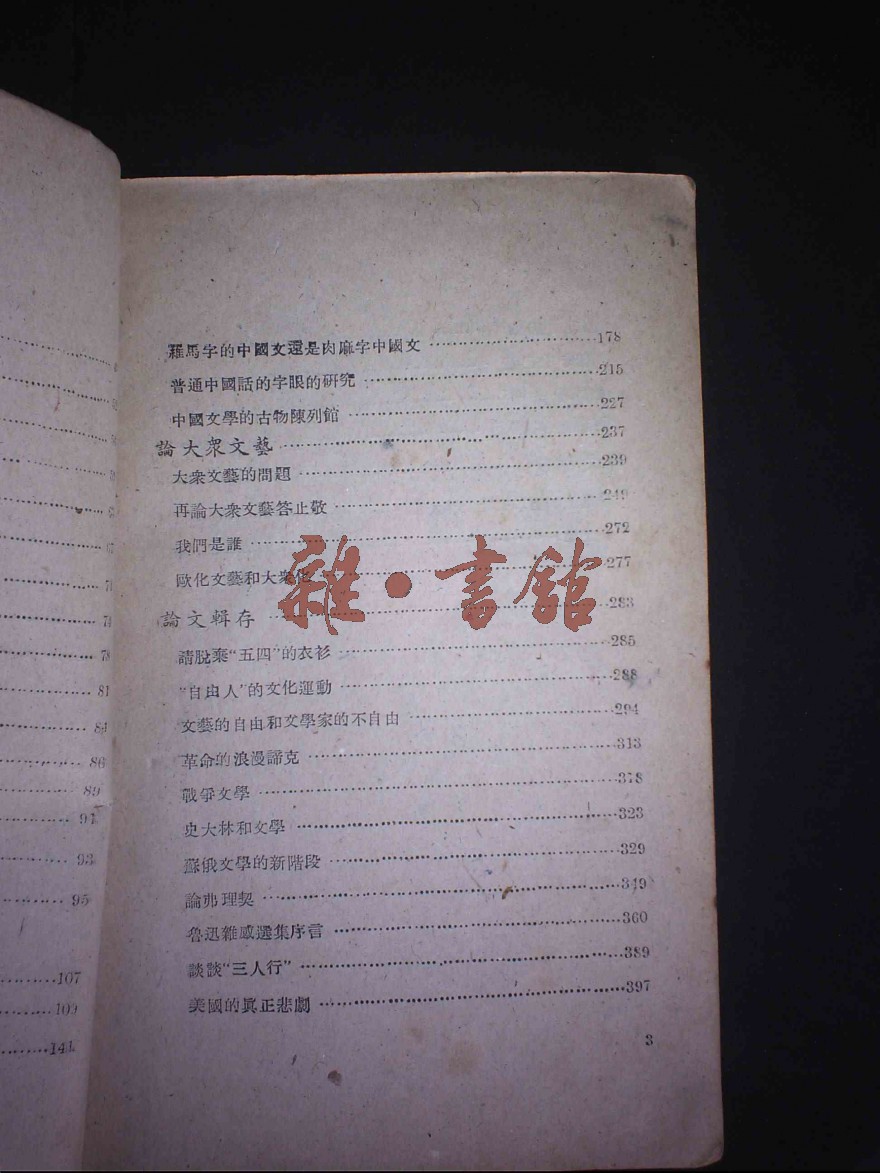 81
84
86
89
91
93
95
107
109
141
羅馬字的中國文還是肉麻字中國文 178
普通中國話的字眼的研究 215
中國文學的古物陳列館 227
論大衆文藝 237
大衆文藝的問題 239
再論大衆文藝答止敬 249
我們是誰 272
歐化文藝和大衆化 277
論文輯存 283
請脫棄“五四”的衣衫 285
“自由人”的文化運動 288
文藝的自由和文學家的不自由 294
革命的浪漫諦克 313
戰爭文學 318
史大林和文學 323
蘇俄文學的新階段 329
論弗理契 349
魯迅雜感選集序言 360
談談“三人行” 389
美國的眞正悲劇 397
3
雜·書館